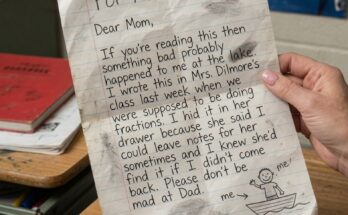 Dear Mom,
If you're reading this then
something bad probably
happened to me at the lake.
I wrote this in Mrs. Dilmore's
class last week when we
were supposed to be doing
fractions. I hid it in her
drawer because she said I
could leave notes for her
sometimes and I knew she'd
find it if I didn't come
back. Please don't be
mad at Dad.
me
me